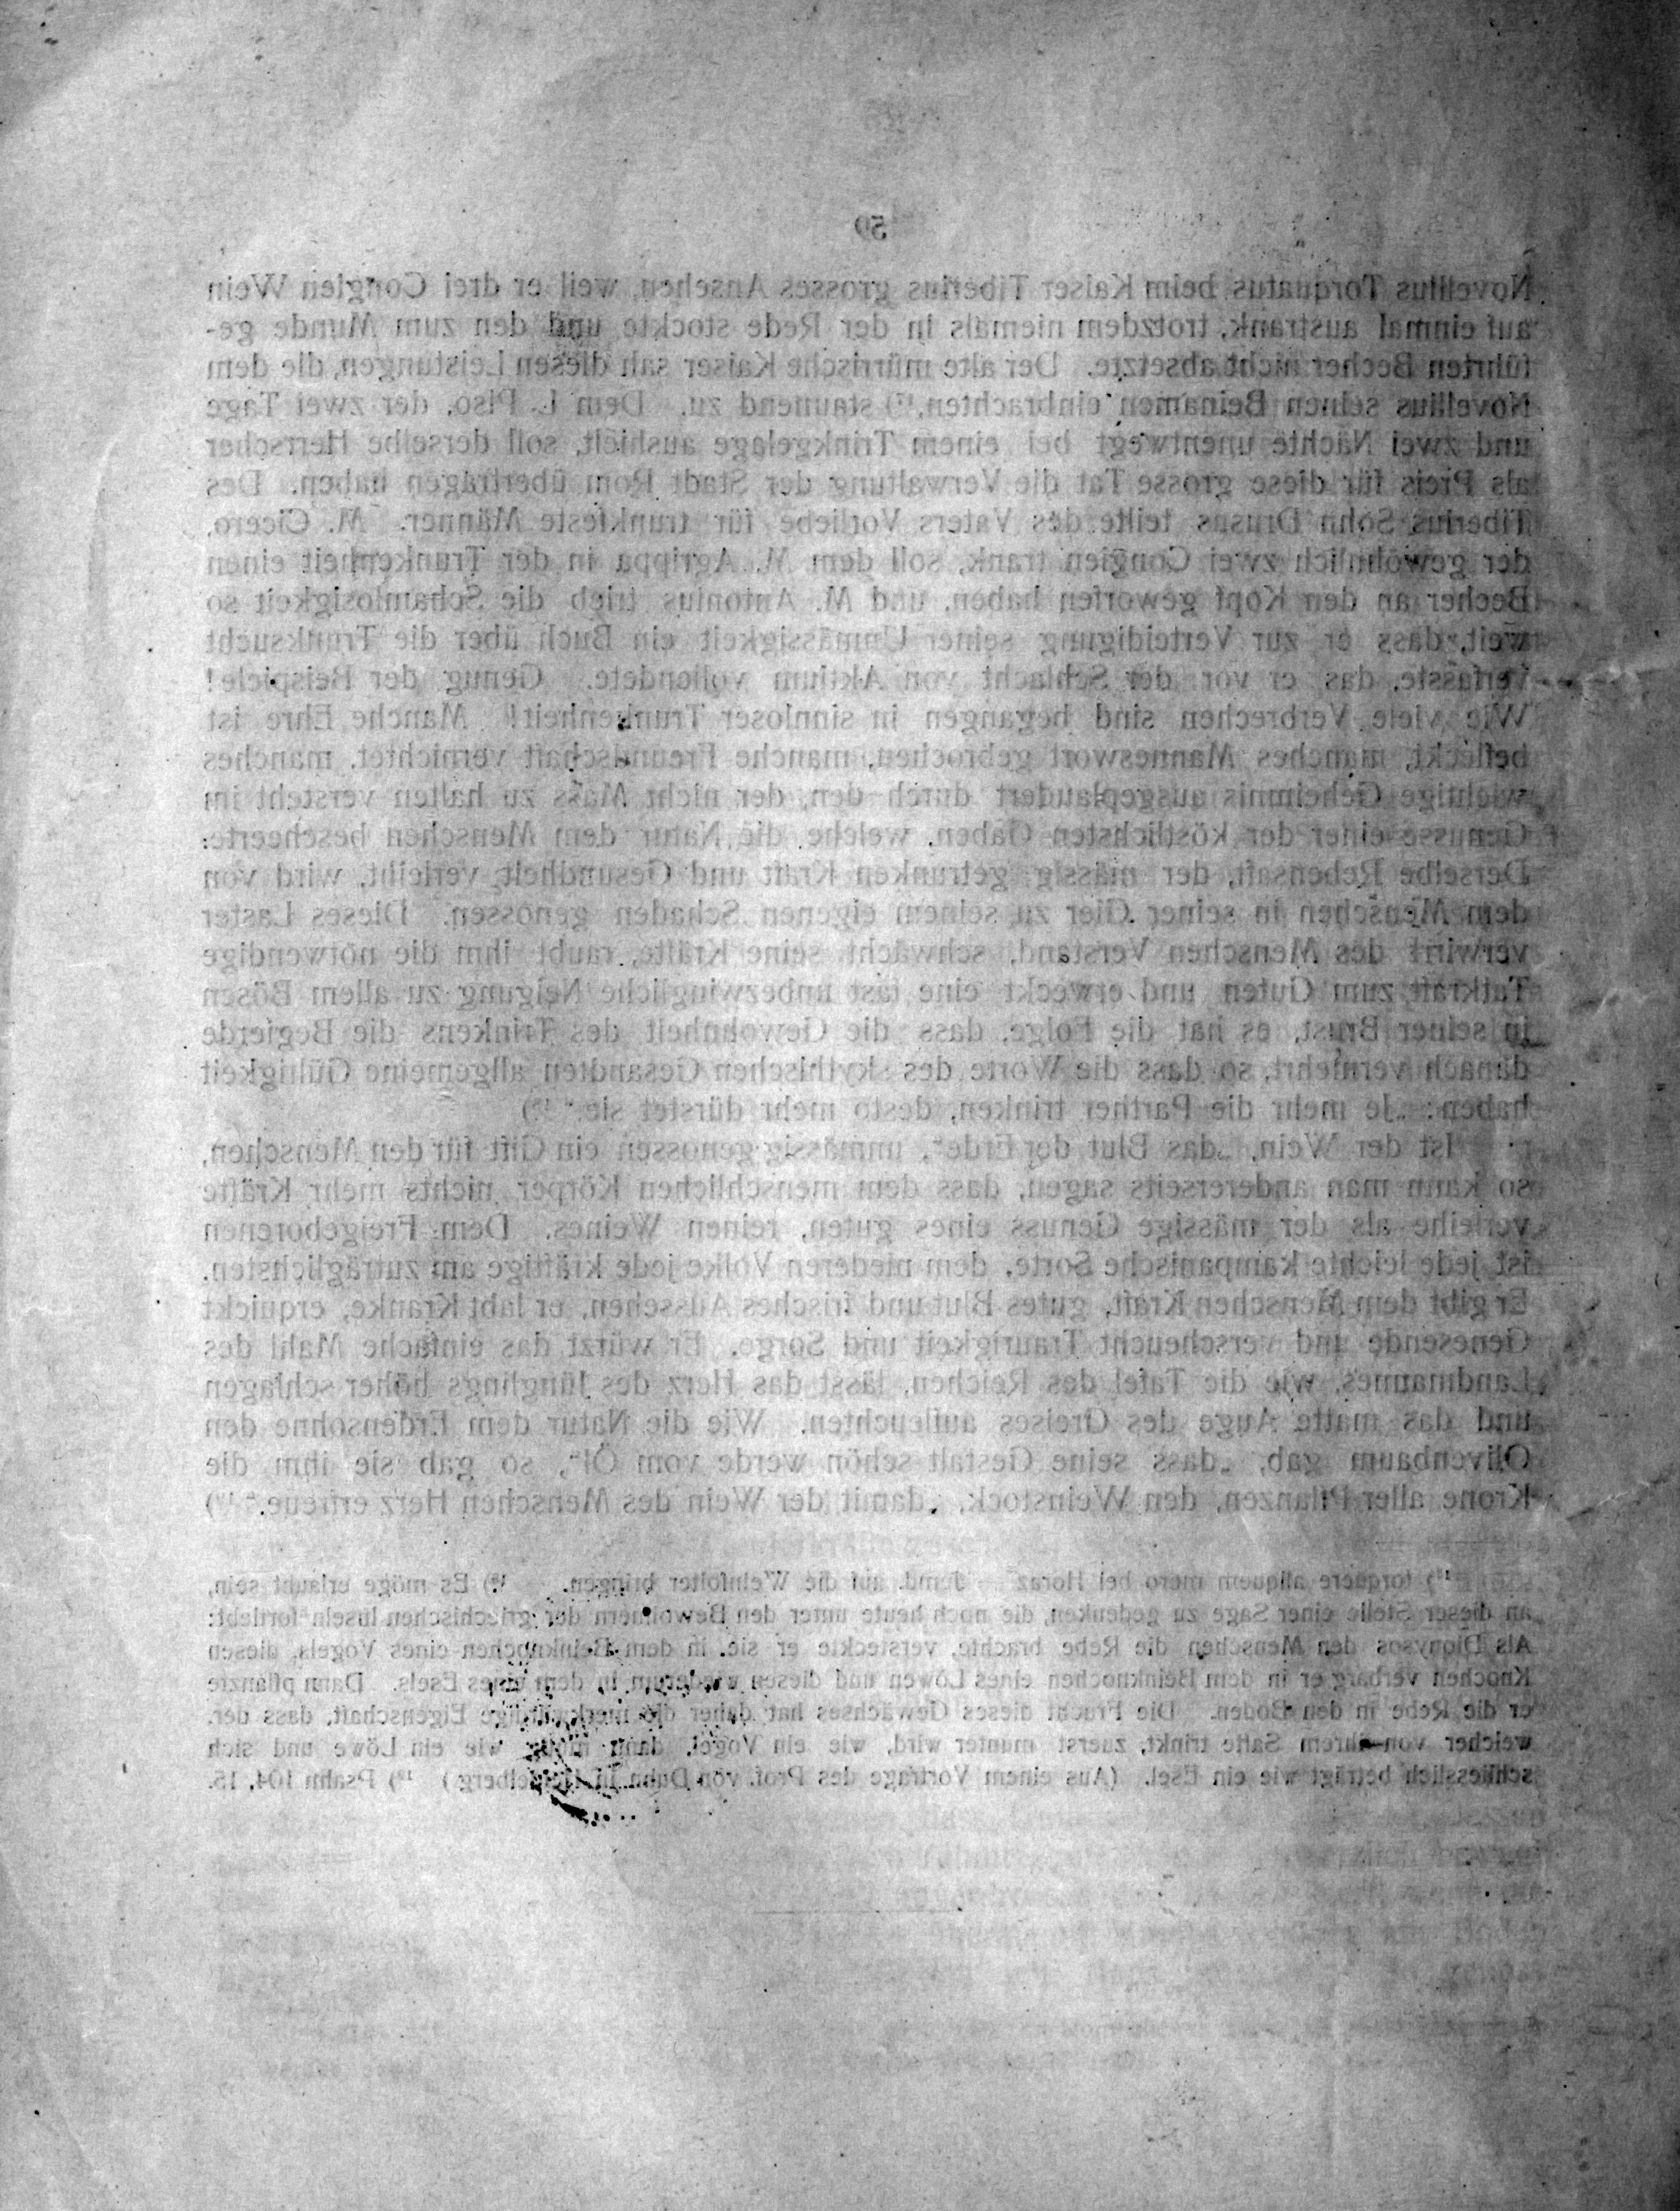 50
Novellius Torquatus beim Kaiser Tiberius grosses Ansehen, weil er drei Congien Wein
auf einmal austrank, trotzdem niemals in der Rede stockte und den zum Munde ge-
führten Becher nicht absetzte. Der alte mürrische Kaiser sah diesen Leistungen, die dem
Novellius seinen Beinamen einbrachten,¹⁷) staunend zu. Dem L. Piso, der zwei Tage
und zwei Nächte unentwegt bei einem Trinkgelage aushielt, soll derselbe Herrscher
als Preis für diese grosse Tat die Verwaltung der Stadt Rom übertragen haben. Des
Tiberius Sohn Drusus teilte des Vaters Vorliebe für trunkfeste Männer. M. Cicero,
der gewöhnlich zwei Congien trank, soll dem M. Agrippa in der Trunkenheit einen
Becher an den Kopf geworfen haben, und M. Antonius trieb die Schamlosigkeit so
weit, dass er zur Verteidigung seiner Unmässigkeit ein Buch über die Trunksucht
verfasste, das er vor der Schlacht von Aktium vollendete. Genug der Beispiele!
Wie viele Verbrechen sind begangen in sinnloser Trunkenheit! Manche Ehre ist
befleckt, manches Manneswort gebrochen, manche Freundschaft vernichtet, manches
wichtige Geheimnis ausgeplaudert durch den, der nicht Mass zu halten versteht im
Genusse einer der köstlichsten Gaben, welche die Natur dem Menschen bescheerte:
Derselbe Rebensaft, der mässig getrunken Kraft und Gesundheit verleiht, wird von
dem Menschen in seiner Gier zu seinem eigenen Schaden genossen. Dieses Laster
verwirrt des Menschen Verstand, schwächt seine Kräfte, raubt ihm die nötwendige
Tatkraft zum Guten und erweckt eine fast unbezwingliche Neigung zu allem Bösen
in seiner Brust, es hat die Folge, dass die Gewohnheit des Trinkens die Begierde
danach vermehrt, so dass die Worte des skythischen Gesandten allgemeine Gültigkeit
haben: „Je mehr die Parther trinken, desto mehr dürstet sie.“ ¹⁸)
Ist der Wein, „das Blut der Erde“, unmässig genossen ein Gift für den Menschen,
so kann man andererseits sagen, dass dem menschlichen Körper nichts mehr Kräfte
verleihe als der mässige Genuss eines guten, reinen Weines. Dem Freigeborenen
ist jede leichte kampanische Sorte, dem niederen Volke jede kräftige am zuträglichsten.
Er gibt dem Menschen Kraft, gutes Blut und frisches Aussehen, er labt Kranke, erquickt
Genesende und verscheucht Traurigkeit und Sorge. Er würzt das einfache Mahl des
Landmannes, wie die Tafel des Reichen, lässt das Herz des Jünglings höher schlagen
und das matte Auge des Greises aufleuchten. Wie die Natur dem Erdensohne den
Olivenbaum gab, „dass seine Gestalt schön werde vom Öl“, so gab sie ihm die
Krone aller Pflanzen, den Weinstock, „damit der Wein des Menschen Herz erfreue.“ ¹⁹)
¹⁷) torquere aliquem mero bei Horaz = Jemd. auf die Weinfolter bringen. ¹⁸) Es möge erlaubt sein,
an dieser Stelle einer Sage zu gedenken, die noch heute unter den Bewohnern der griechischen Inseln fortlebt:
Als Dionysos den Menschen die Rebe brachte, versteckte er sie in dem Beinknochen eines Vogels, diesen
Knochen verbarg er in dem Beinknochen eines Löwen und diesen wiederum in dem eines Esels. Dann pflanzte
er die Rebe in den Boden. Die Frucht dieses Gewächses hat daher die merkwürdige Eigenschaft, dass der,
welcher von ihrem Safte trinkt, zuerst munter wird, wie ein Vogel, dann wie ein Löwe und sich
schliesslich beträgt wie ein Esel. (Aus einem Vortrage des Prof. von Duhn in Heidelberg.) ¹⁹) Psalm 104, 15.